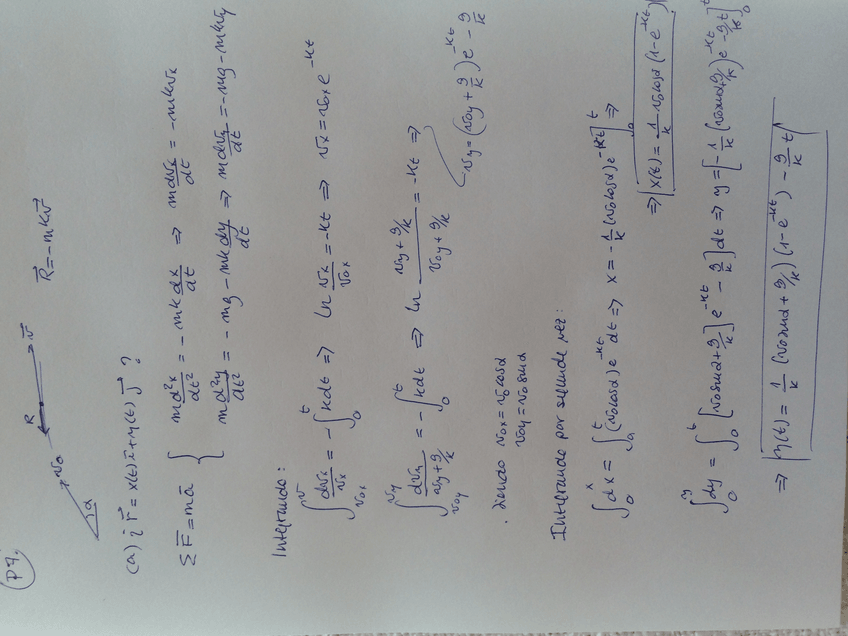 P7.
α v₀ R v⃗ R⃗ = -mkv⃗
(a) ¿ r⃗ = x(t) i⃗ + y(t) j⃗ ?
ΣF⃗ = ma⃗ { m d²x/dt² = -mk dx/dt ⇒ m dvx/dt = -mkvx
m d²y/dt² = -mg - mk dy/dt ⇒ m dvy/dt = -mg - mkvy
Integrando:
∫_{v0x}^{v} dvx/vx = -∫_0^t kdt ⇒ ln vx/v0x = -kt ⇒ vx = v0x e^{-kt}
∫_{v0y}^{vy} dvy/(vy + g/k) = -∫_0^t kdt ⇒ ln (vy + g/k)/(v0y + g/k) = -kt ⇒
vy = (v0y + g/k) e^{-kt} - g/k
. siendo v0x = v0 cosα
v0y = v0 senα
Integrando por segunda vez:
∫_0^x dx = ∫_0^t (v0 cosα) e^{-kt} dt ⇒ x = -1/k (v0 cosα) e^{-kt}]_0^t ⇒
⇒ x(t) = 1/k v0 cosα (1 - e^{-kt})
∫_0^y dy = ∫_0^t [(v0 senα + g/k] e^{-kt} - g/k] dt ⇒ y = [-1/k (v0 senα + g/k) e^{-kt} - g/k t]_0^t
⇒ y(t) = 1/k (v0 senα + g/k) (1 - e^{-kt}) - g/k t